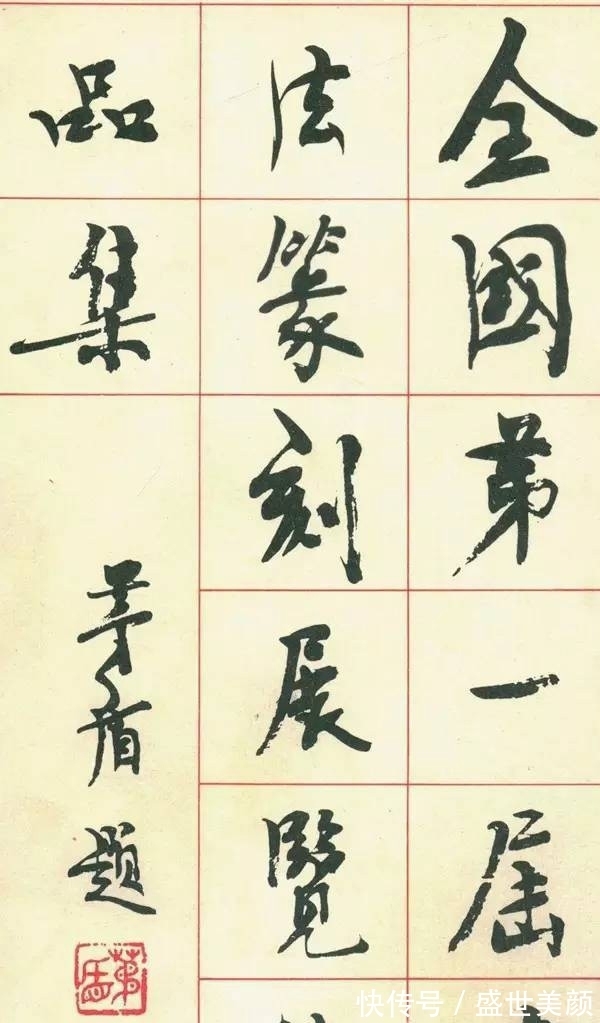 全國第一屆
法篆刻展覽
品集
茅盾题
茅盾
快传号 / 盛世美颜